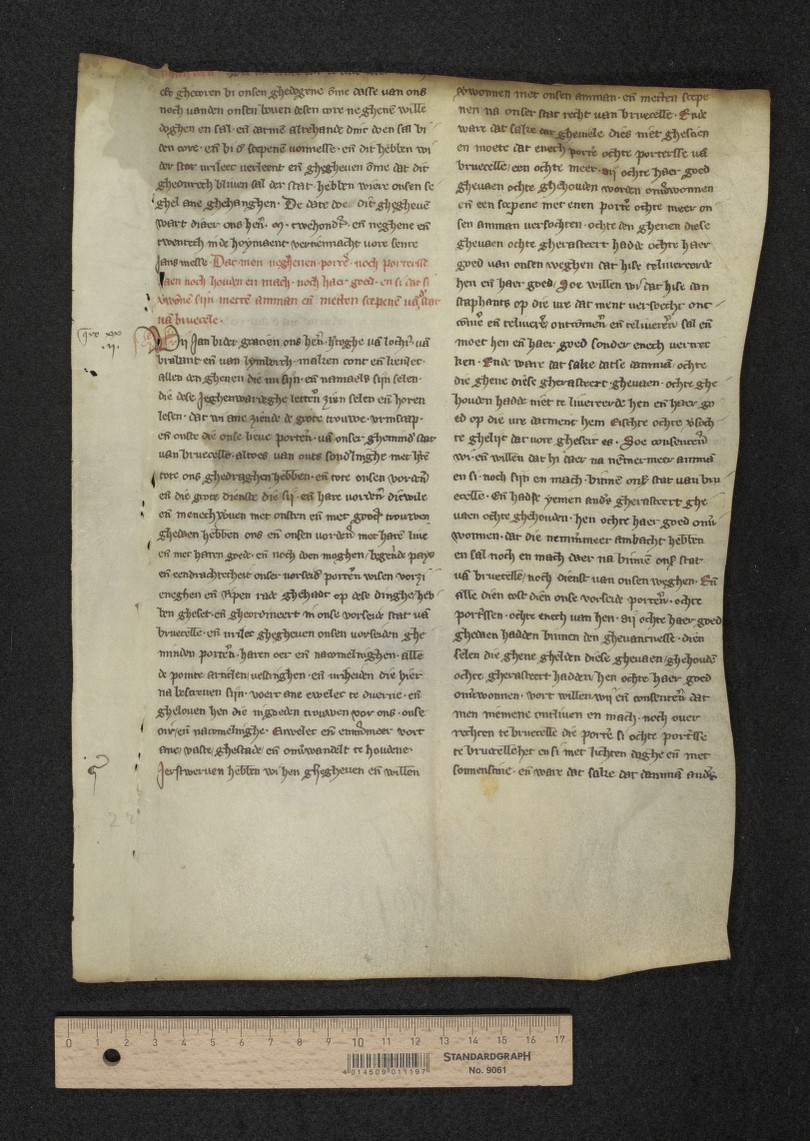 ofte ghecoren bi onsen ghedogene ōme dasse van ons
noch vanden onsen boven desen core neghene wille
doghen en sal en darmē alrehande dinc doen sal bi
den core · en̄ bi d' scepenē vonnesse · en̄ dit hebben wi
der stat vrileec verleent en̄ ghegheven ōme dat dit
ghedurech bliven sal der stat hebben wiere onsen se
ghel ane ghehanghen · De date doe dit ghegheuē
wart diaer ons her̄ · m · twehond't · en̄ neghene en̄
twentech in de hoymaent
Jans messe · Dat men neghenen port' · noch porterssē
vaen noch houden en mach · noch haer goed · en si dat si
v'wōnē sijn metten amman en̄ metten scepenē vā der stat
vā bruecele ·
xxx
· ij ·
Wij Jan bi der gracien ons her̄ · h'toghe vā loth'r · vā
brabant en̄ van lymborch · maken cont en̄ kenlec ·
allen den ghenen die nu sijn · en̄ namaels sijn selen ·
die dese jeghenwardeghe letter̄ zien selen en̄ horen
lesen · dat wi ane ziende de grote trouwe · vrinscap ·
en̄ onste die onse lieve porter̄ · vā onser ghemind' stat
van bruecelle · altoes van outs sond'linghe met h'tē
tote ons ghedraghen hebben · en̄ tote onsen vorder̄
en̄ die grote dienste die sij · en̄ hare vorder̄ diewile
en̄ menechvoude met onsten en̄ met goed' trouwen
ghedaen hebben ons en̄ onsen vorder̄ met harē live
en̄ met haren goede · en̄ noch doen moghen / begerēde pays
en̄ eendrachtecheit onser vorseid' porter̄ wisen vorzi
eneghen en̄ ripen rade ghehadt op dese dinghe heb
ben gheset · en̄ gheordineert in onse vorseide stat vā
bruecelle · en̄ vrilec ghegheven onsen vorseiden ghe
minden porter̄ · haren oer en̄ nacomelinghen · alle
de pointe articlen / vestinghen · en̄ vriheiden die hier
na bescreven sijn · voert ane ewelec te duerne · en̄
gheloven hen die in goeden trouwen vor ons · onse
oir / en̄ nacomelinghe · Ewelec en̄ emm'meer vort
ane / vaste / ghestade / en̄ onūwandelt te houdene ·
Jerstwerven hebben wi hen ghegheven en̄ willen
v'wonnen met onsen amman · en̄ metten scepe
nen na onser stat recht van bruecelle · Ende
ware dat sake dat ghemele dies niet ghescien
en moete dat enech portre ochte portersse vā
bruecelle / een ochte meer · an ochte haer goed
ghevaen ochte ghehouden worden onūwonnen
en̄ een scepene met enen port' ochte meer on
sen amman versochten · ochte den ghenen diese
ghevaen ochte gherasteert hadde ochte haer
goed van onsen weghen dat hise teliuereerde
hen en̄ haer goed / Soe willen wi dat hise dan
staphants op die ure dat ment versoecht ont
comē en̄ teliuer' ontcomēn en̄ teliuerēn sal en̄
moet hen en̄ haer goed sonder enech vertrec
ken · Ende ware dat sake datse dāman · ochte
die ghene diese gherasteert · ghevaen · ochte ghe
houden hadde niet te liuereerde hen en̄ haer go
ed op die ure datment hem eischte ochte v'soch
te ghelijc dat vore gheseit es · Soe consenter̄
wi · en̄ willen dat hi daer na nēmermeer amman
en si · noch sijn en mach · binnē ons' stat van bru
ecelle · En̄ hadse yemen and's gherasteert ghe
vaen ochte ghehouden · hen ochte haer goed onū
wonnen · dat die nemmermeer ambacht hebben
en sal noch en mach daer na binnē ons' stat
vā bruecelle / noch dienst van onsen weghen · En̄
alle dien cost dien onse vorseide porter̄ · ochte
port'ssen · ochte enech van hen · an ochte haer goed
ghedaen hadden binnen den ghevancnesse · dien
selen die ghene ghelden diese ghevaen / ghehoudē
ochte gherasteert hadden / hen ochte haer goed
onūwonnen · vort willen wij en̄ consenter̄ dat
men niemene ontliven en mach · noch over
rechten te bruecelle die port' si ochte port'sse
te bruecelle het en si met lichten daghe en̄ met
sonnenscine · en̄ ware dat sake dat dāman and's
0 1 2 3 4 5 6 7 8 9 10 11 12 13 14 15 16 17
STANDARDGRAPH
4 014509 011197
No. 9061